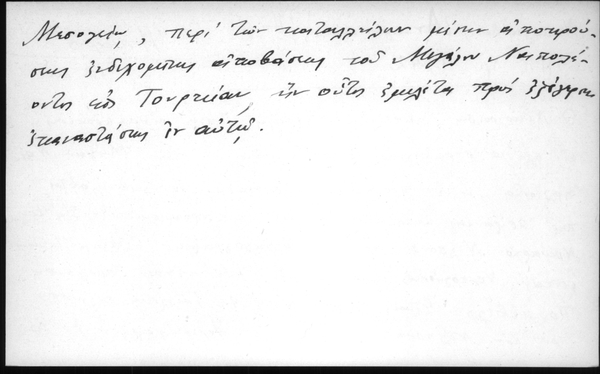 Μεσογείῳ, περί τῶν καταλλήλων μέσων ἀποκρού-
σεως ἐνδεχομένης ἀποβάσεως τοῦ Μεγάλου Ναπολέ-
οντος εἰς Τουρκίαν, ἥν οὗτος ἐμελέτα πρός ἐξέγερσιν
ἐπαναστάσεως ἐν αὐτῇ.